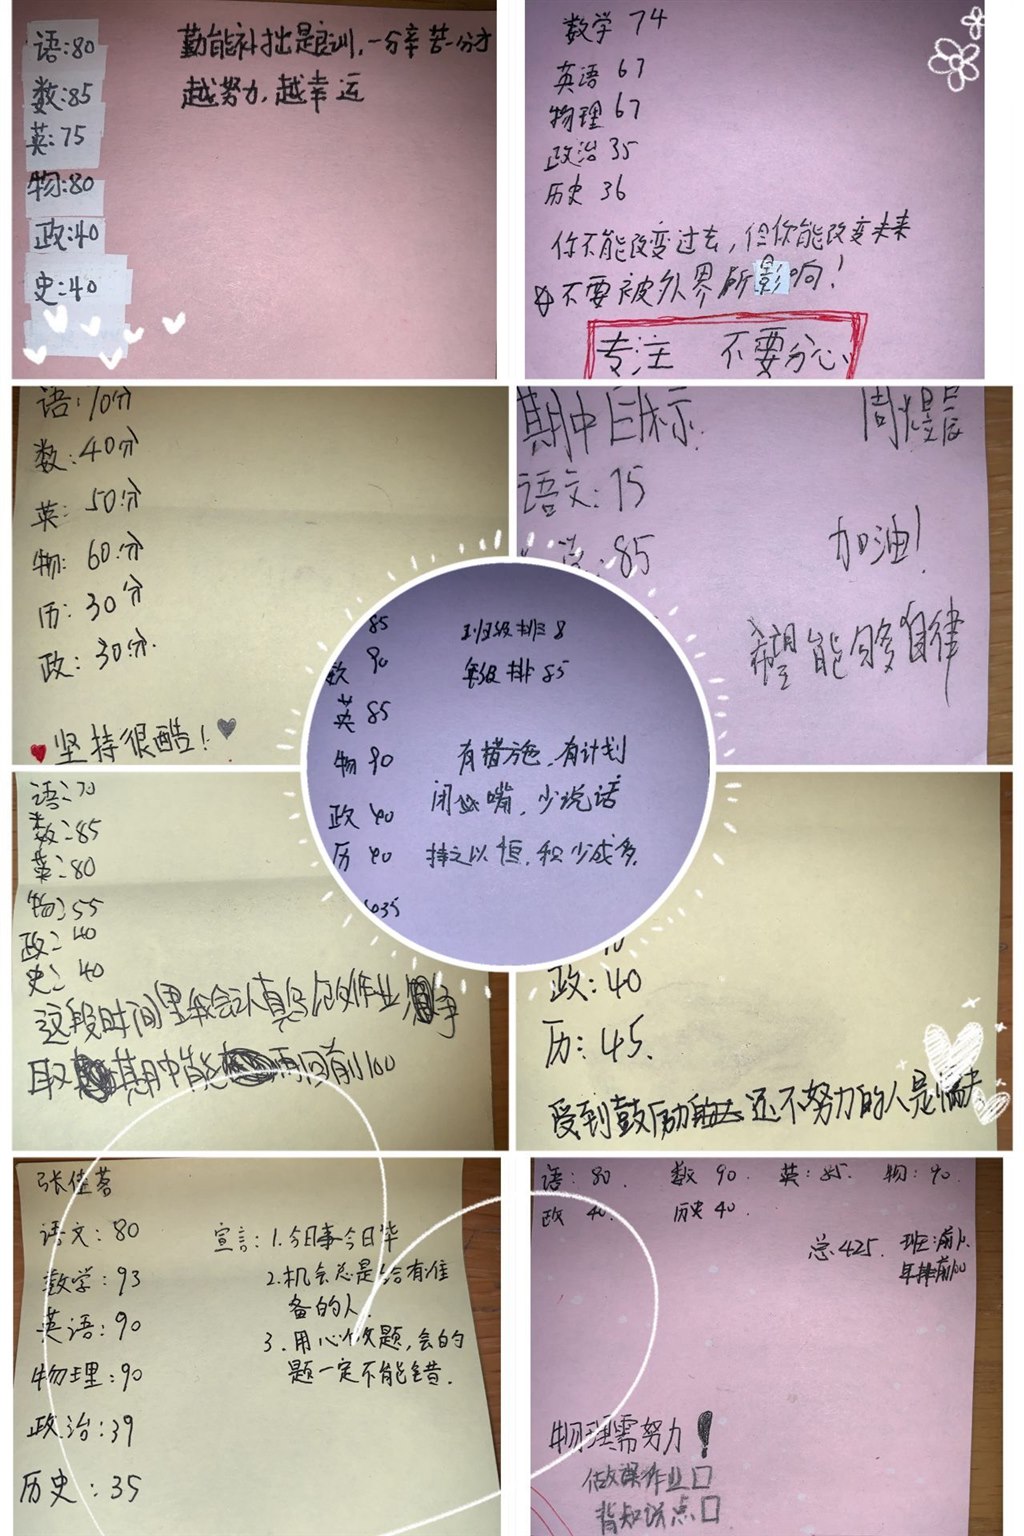 语:80
数:85
英:75
物:80
政:40
史:40
勤能补拙是良训,一分辛苦一分才
越努力,越幸运
数学 74
英语 67
物理 67
政治 35
历史 36
你不能改变过去,但你能改变未来
不要被外界所影响!
专注 不要分心
语:70分
数:40分
英:50分
物:60分
历:30分
政:30分.
坚持很酷!
期中目标.
语文:75
:85
加油!
希望能够自律
85
数 90
英 85
物 90
政 40
历 40
班级排 8
年级排 85
有措施,有计划
闭上嘴,少说话
持之以恒,积少成多.
语:70
数:85
英:80
物:55
政:40
史:40
这段时间里我会认真写作业 争
取 期中能 再回前100
政:40
历:45.
受到鼓励 还不努力的人是懦夫
张佳茗
语文:80
数学:93
英语:90
物理:90
政治:39
历史:35
宣言:1.今日事今日毕
2.机会总是给有准
备的人.
3.用心做题,会的
题一定不能错.
语:80. 数 90. 英:85. 物:90.
政 40. 历史 40.
总425. 班:前
年排前100
物理需努力!
做课作业□
背知识点□